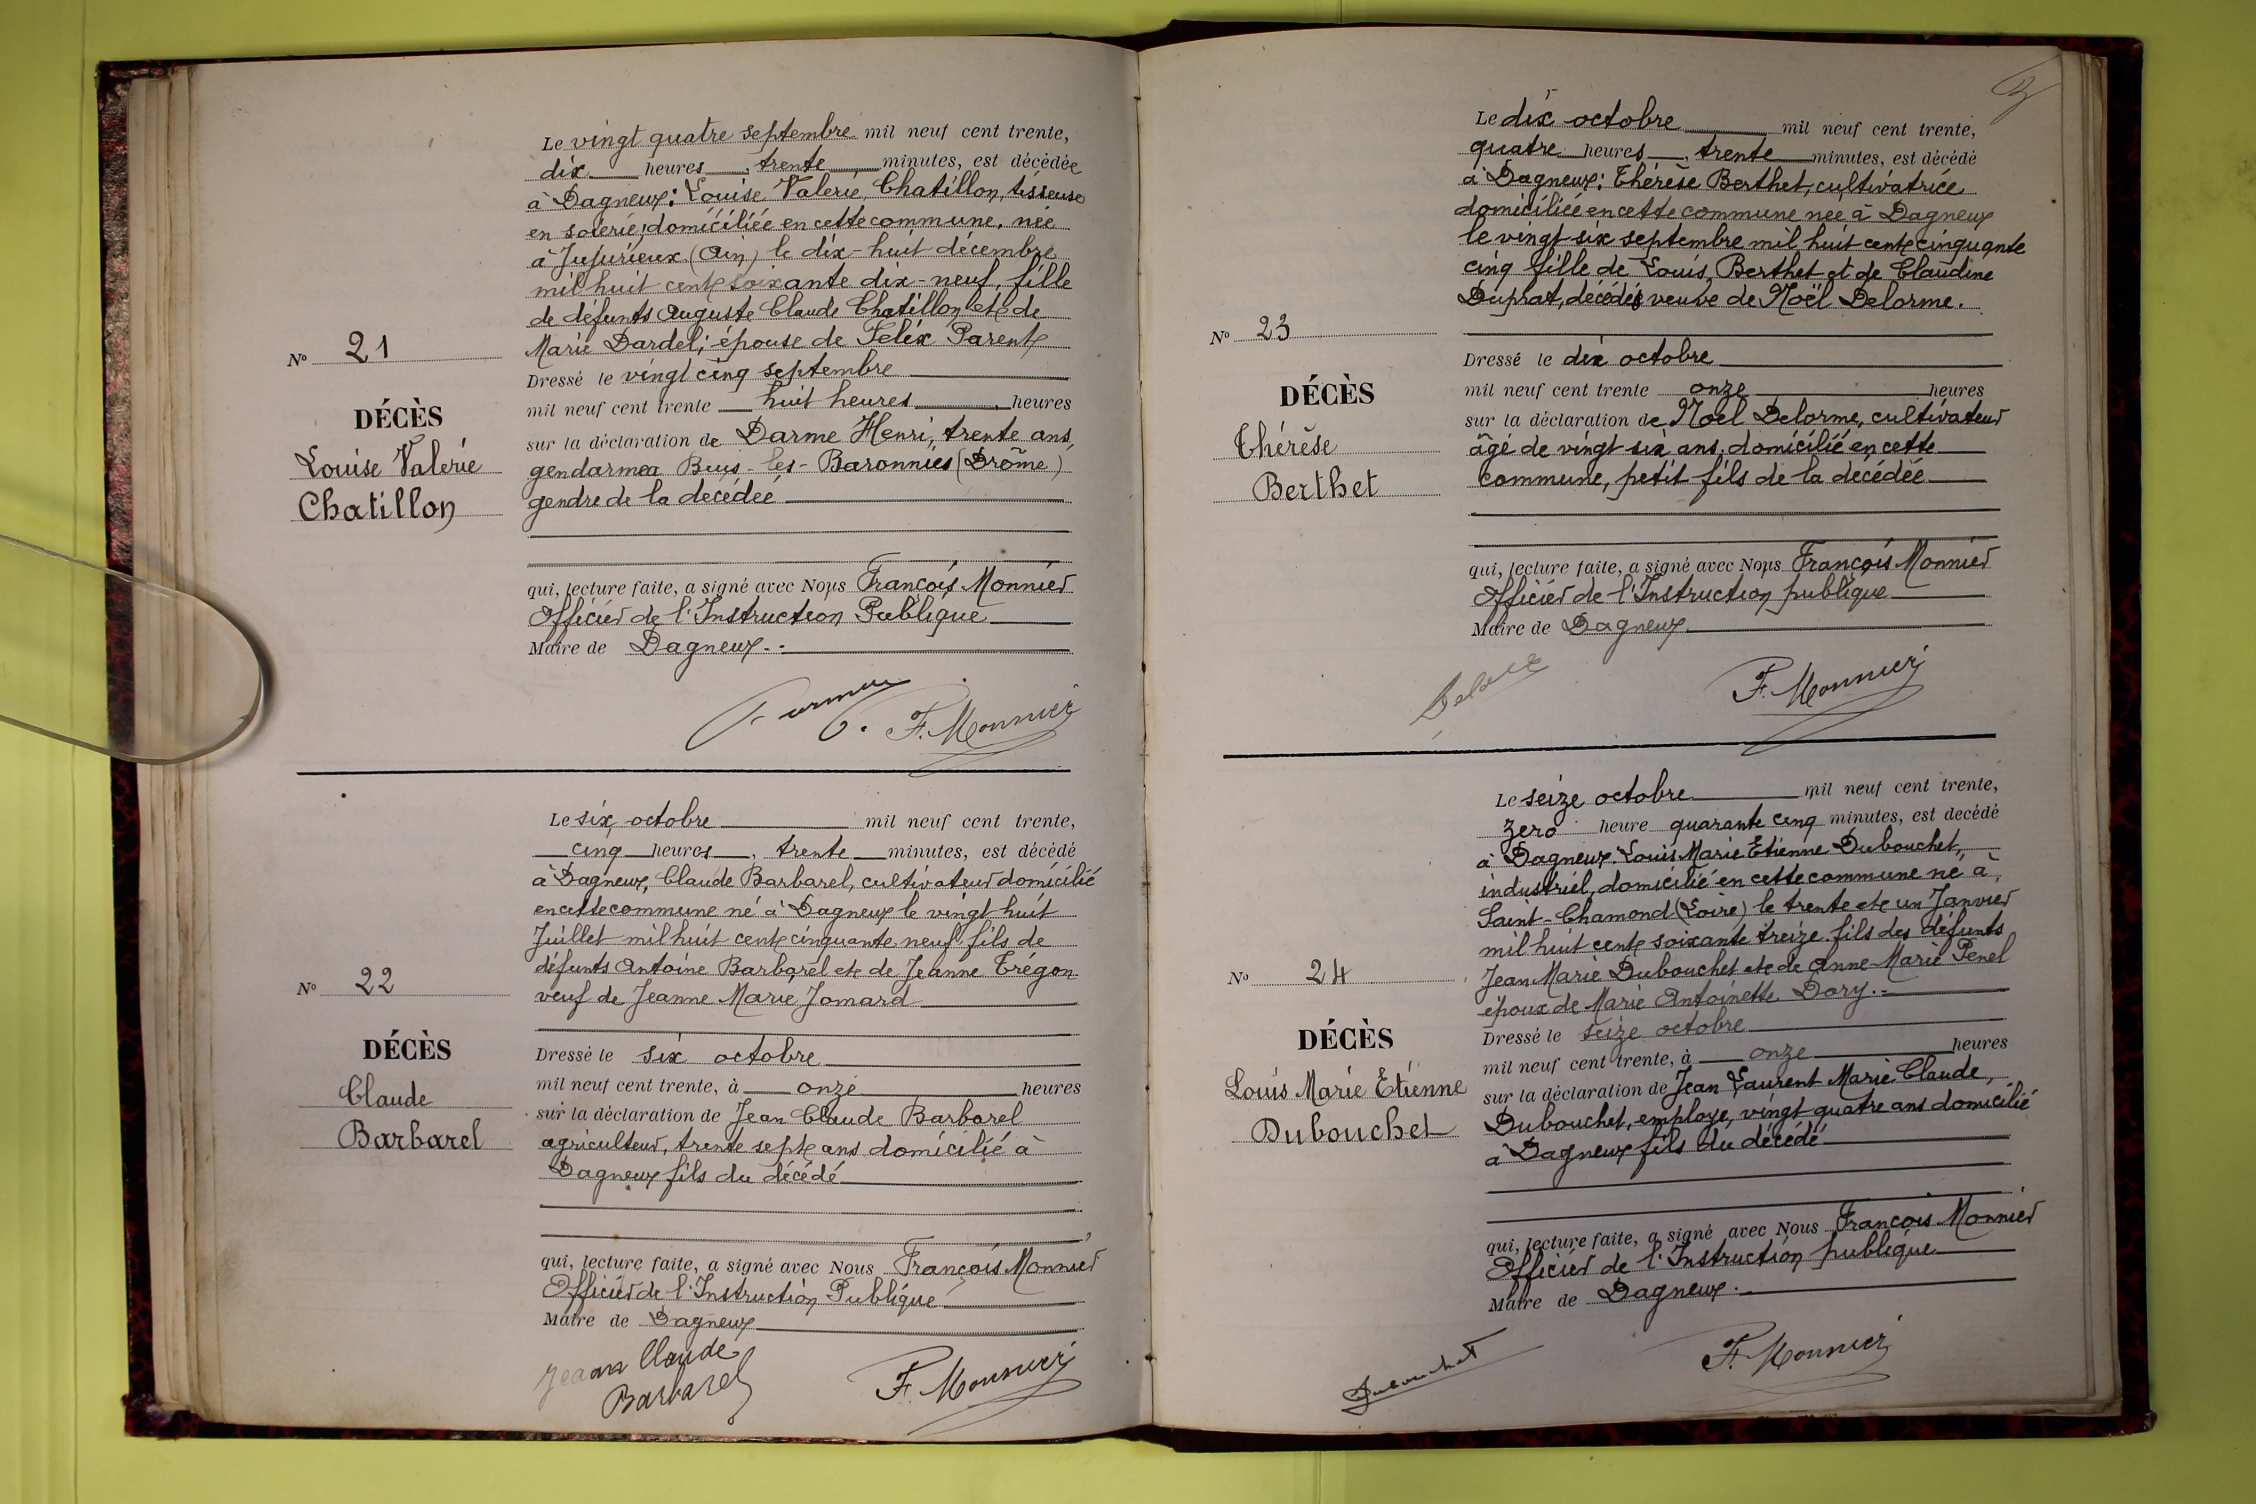 Le vingt quatre septembre mil neuf cent trente,
dix heures, trente minutes, est décédée
à Dagneux: Louise Valerie Chatillon, tisseuse
en soierie, domiciliée en cette commune, née
à Jujurieux (Ain) le dix-huit décembre
mil huit cent soixante dix-neuf, fille
de défunts Auguste Claude Chatillon et de
Marie Dardel; épouse de Félix Parent
Nº 21
DÉCÈS
Louise Valerie
Chatillon
Dressé le vingt cinq septembre
mil neuf cent trente huit heures heures
sur la déclaration de Darme Henri, trente ans,
gendarme a Buis-les-Baronnies (Drôme)
gendre de la décédée
qui, lecture faite, a signé avec Nous François Monnier
Officier de l'Instruction Publique
Maire de Dagneux.
F. Monnier
Le six octobre mil neuf cent trente,
cinq heures, trente minutes, est décédé
à Dagneux, Claude Barbarel, cultivateur domicilié
en cette commune né à Dagneux le vingt huit
Juillet mil huit cent cinquante neuf fils de
défunts Antoine Barbarel et de Jeanne Trégon
veuf de Jeanne Marie Jomard
Nº 22
DÉCÈS
Claude
Barbarel
Dressé le six octobre
mil neuf cent trente, à onze heures
sur la déclaration de Jean Claude Barbarel
agriculteur, trente sept ans domicilié à
Dagneux fils du décédé
qui, lecture faite, a signé avec Nous François Monnier
Officier de l'Instruction Publique
Maire de Dagneux
Jean Claude
Barbarel
F. Monnier
Le dix octobre mil neuf cent trente,
quatre heures, trente minutes, est décédé
à Dagneux: Thérèse Berthet, cultivatrice
domiciliée en cette commune née à Dagneux
le vingt six septembre mil huit cent cinquante
cinq fille de Louis Berthet et de Claudine
Duprat, décédés veuve de Noël Delorme.
Nº 23
DÉCÈS
Thérèse
Berthet
Dressé le dix octobre
mil neuf cent trente onze heures
sur la déclaration de Noël Delorme, cultivateur
âgé de vingt six ans, domicilié en cette
commune, petit fils de la décédée
qui, lecture faite, a signé avec Nous François Monnier
Officier de l'Instruction publique
Maire de Dagneux
F. Monnier
Le seize octobre mil neuf cent trente,
zero heure quarante cinq minutes, est decédé
à Dagneux: Louis Marie Etienne Dubouchet,
industriel, domicilié en cette commune né à
Saint-Chamond (Loire) le trente et un Janvier
mil huit cent soixante treize fils des défunts
Jean Marie Dubouchet et de Anne-Marie Penel
époux de Marie Antoinette Dory.
Nº 24
DÉCÈS
Louis Marie Etienne
Dubouchet
Dressé le seize octobre
mil neuf cent trente, à onze heures
sur la déclaration de Jean Laurent Marie Claude,
Dubouchet, employe, vingt quatre ans domicilié
à Dagneux fils du décédé
qui, lecture faite, a signé avec Nous François Monnier
Officier de l'Instruction publique
Maire de Dagneux.
Dubouchet
F. Monnier